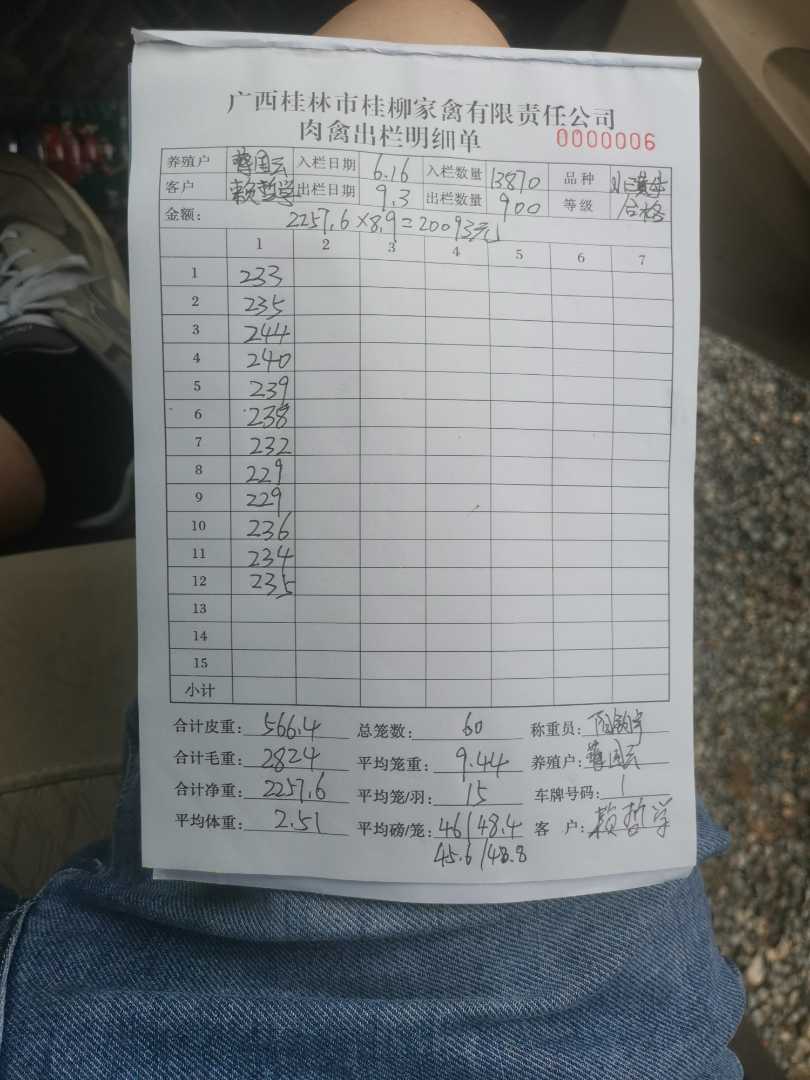 广西桂林市桂柳家禽有限责任公司
肉禽出栏明细单 0000006
养殖户 曾国云 入栏日期 6.16 入栏数量 13870 品种
客户 赖哲学 出栏日期 9.3 出栏数量 900 等级 合格
金额: 2257.6×8.9=20093元
1 2 3 4 5 6 7
1 233
2 235
3 244
4 240
5 239
6 238
7 232
8 229
9 229
10 236
11 234
12 235
13
14
15
小计
合计皮重: 566.4 总笼数: 60 称重员:
合计毛重: 2824 平均笼重: 9.44 养殖户: 曾国云
合计净重: 2257.6 平均笼/羽: 15 车牌号码: 1
平均体重: 2.51 平均磅/笼: 46/48.4 客户: 赖哲学
45.6/48.8